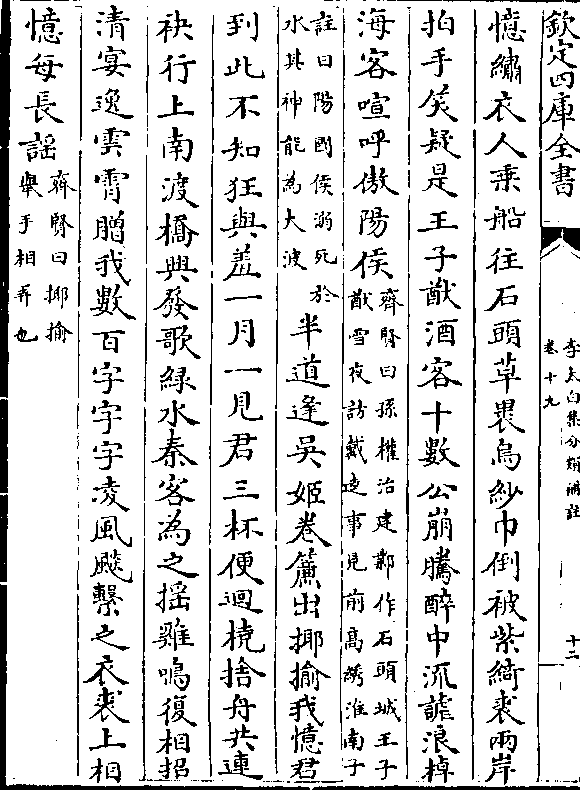 欽定四庫全書
李太白集分類補註
卷十九
十二
憶繡衣人乘船往石頭草裹烏紗巾倒被紫綺裘兩岸
拍手笑疑是王子猷酒客十數公崩騰醉中流謔浪棹
海客喧呼傲陽侯
齊賢曰孫權治建鄴作石頭城王子
猷雪夜訪戴逵事見前高綉淮南子
註曰陽國侯溺死於
水其神能為大波
半道逢吳姬卷簾出揶揄我憶君
到此不知狂與羞一月一見君三杯便迴橈捨舟共連
袂行上南渡橋興發歌綠水秦客為之搖雞鳴復相招
清宴逸雲霄贈我數百字字字凌風飈繫之衣裘上相
憶每長謠
齊賢曰揶揄
舉手相弄也